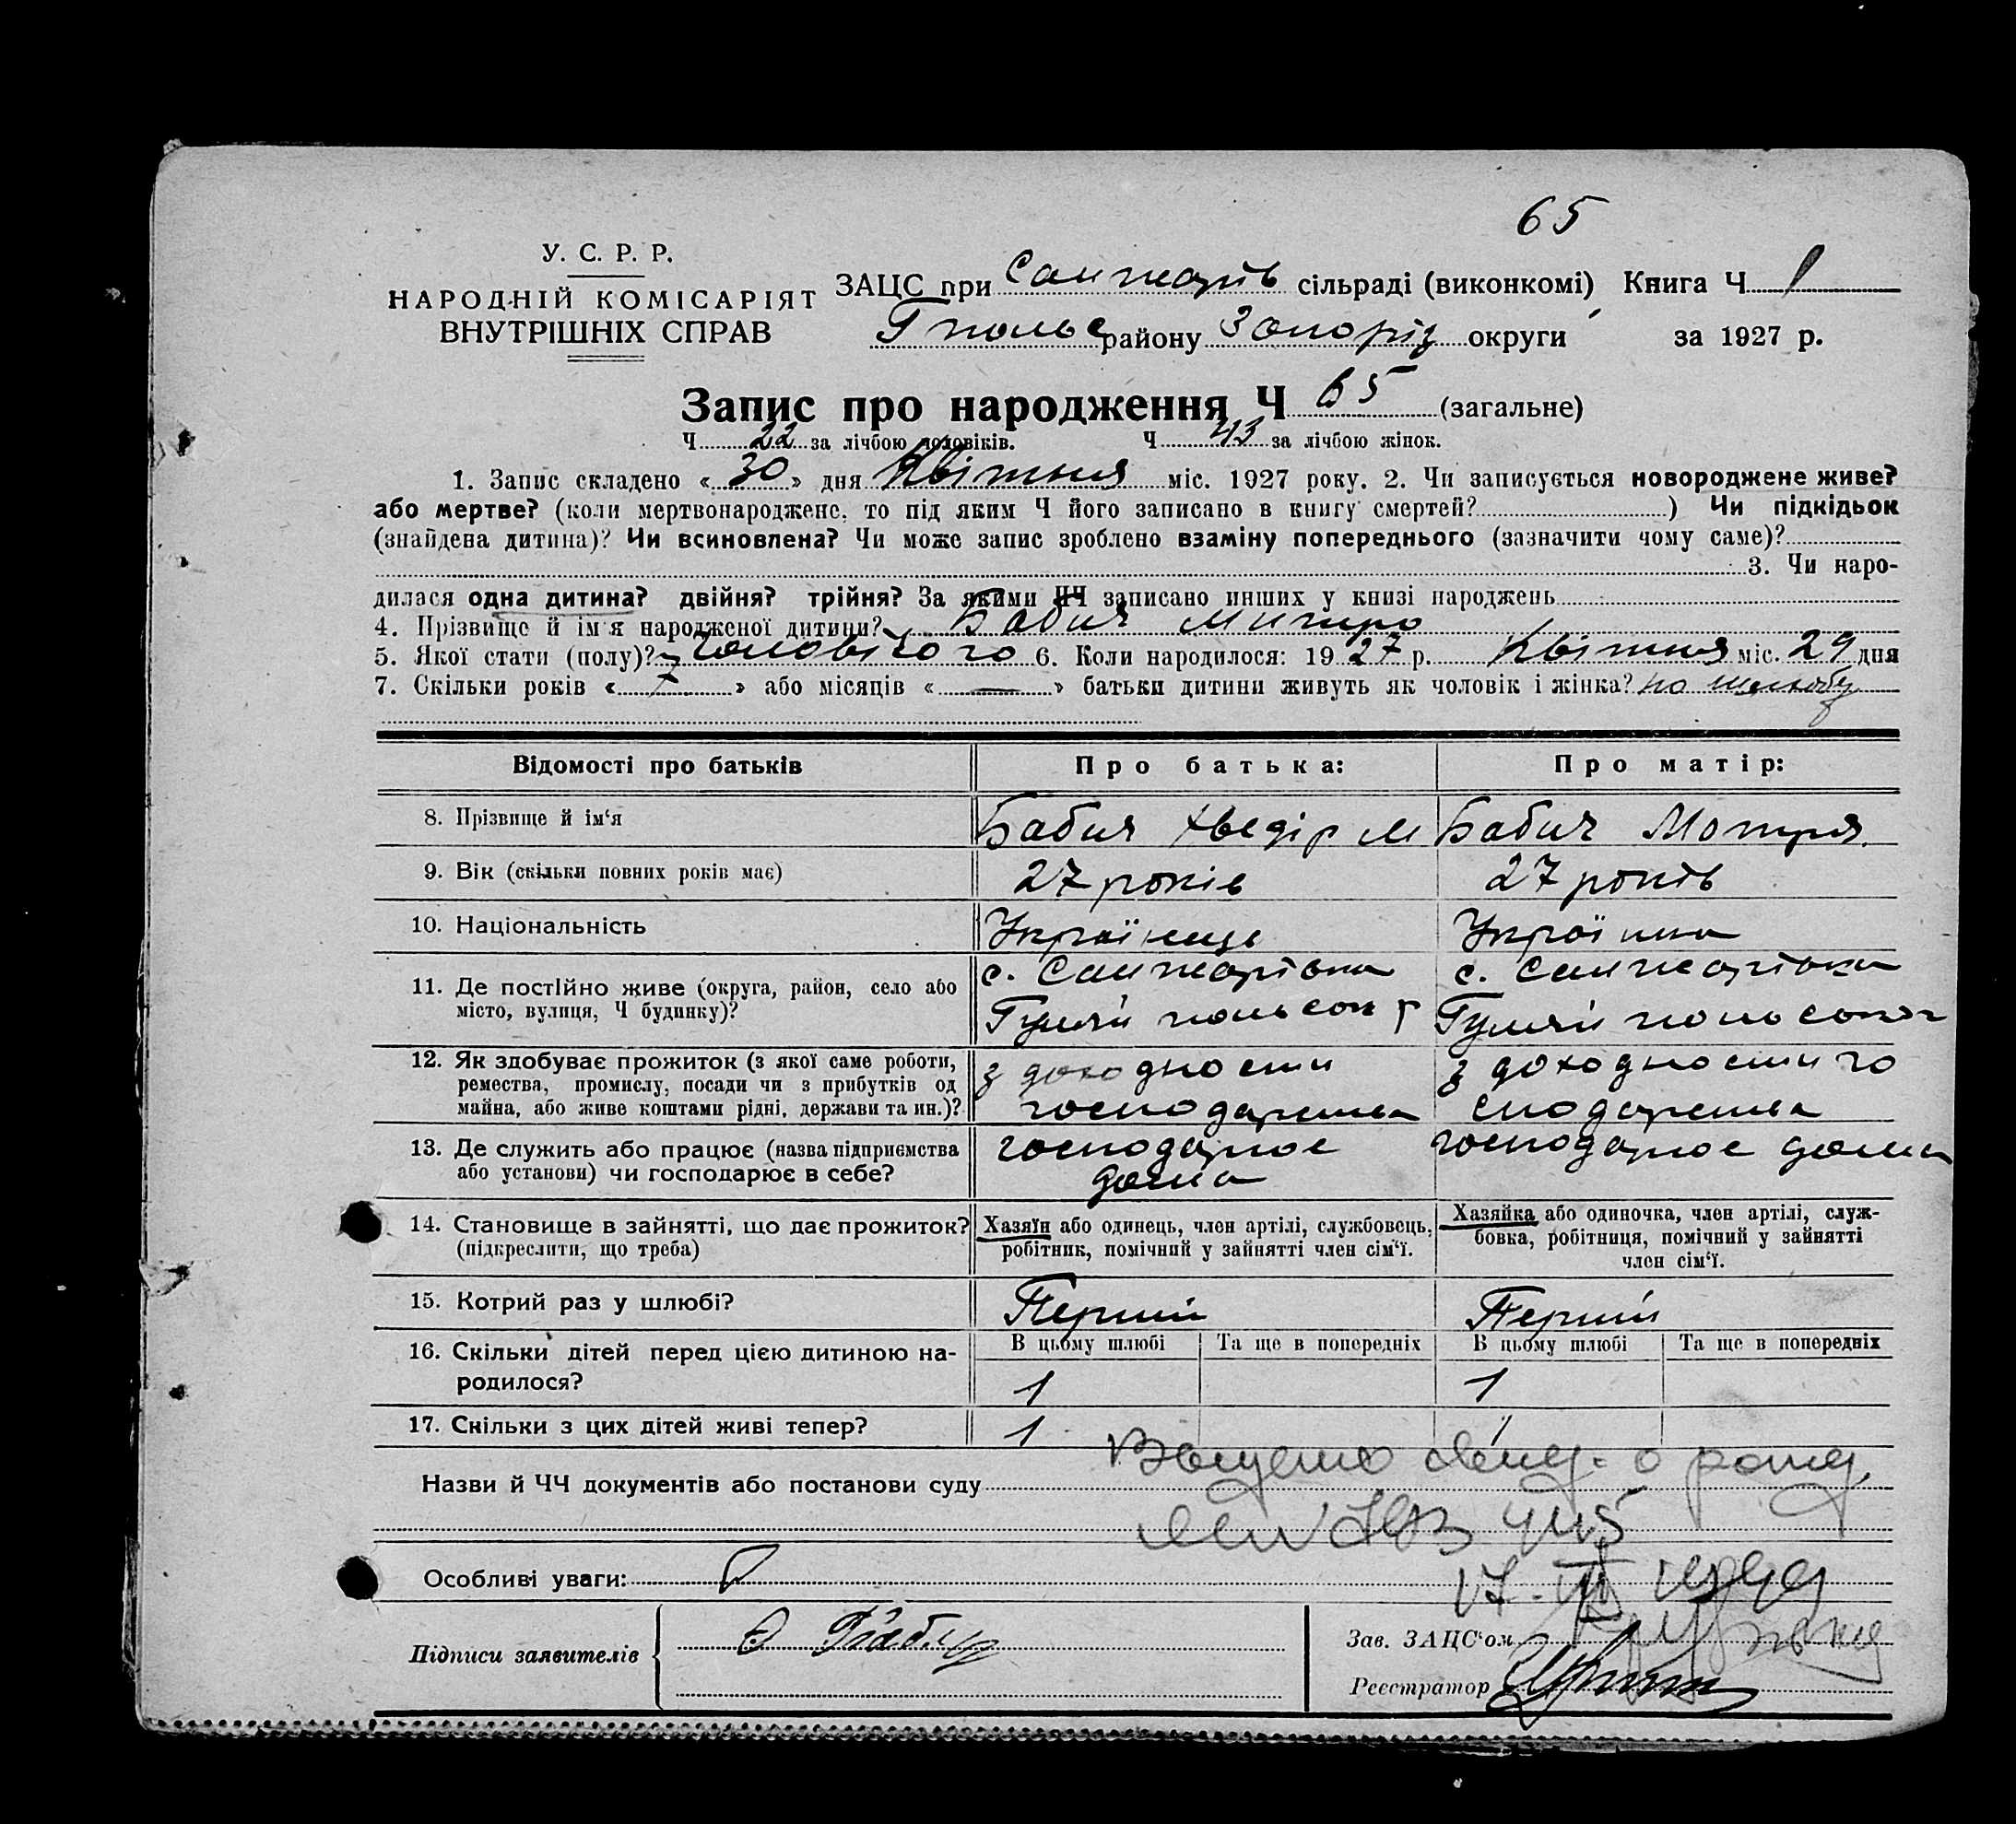 65
У. С. Р. Р.
НАРОДНІЙ КОМІСАРІЯТ
ВНУТРІШНІХ СПРАВ
ЗАЦС при Санжарів сільраді (виконкомі) Книга Ч 1
Гполь району Запоріз округи за 1927 р.
Запис про народження Ч 65 (загальне)
Ч 22 за лічбою чоловіків. Ч 43 за лічбою жінок.
1. Запис складено « 30 » дня Квітня міс. 1927 року. 2. Чи записується новороджене живе?
або мертве? (коли мертвонароджене, то під яким Ч його записано в книгу смертей? ) Чи підкідьок
(знайдена дитина)? Чи всиновлена? Чи може запис зроблено взаміну попереднього (зазначити чому саме)?
3. Чи наро-
дилася одна дитина? двійня? трійня? За якими ЧЧ записано инших у книзі народжень
4. Прізвище й ім'я народженої дитини? Бабич
5. Якої стати (полу)? чоловічого 6. Коли народилося: 19 27 р. Квітня міс. 29 дня
7. Скільки років « 7 » або місяців « — » батьки дитини живуть як чоловік і жінка? по шлюбу
Відомості про батьків Про батька: Про матір:
8. Прізвище й ім‘я Бабич Хведір М Бабич Мотря.
9. Вік (скільки повних років має) 27 років 27 років
10. Національність Українець Українка
11. Де постійно живе (округа, район, село або місто, вулиця, Ч будинку)? с. Санжарівка с. Санжарівка
Гуляй Гуляй
12. Як здобуває прожиток (з якої саме роботи, ремества, промислу, посади чи з прибутків од майна, або живе коштами рідні, держави та ин.)? з доходности господарства з доходности го
сподарства
13. Де служить або працює (назва підприємства або установи) чи господарює в себе? господарює дома господарює дома
14. Становище в зайнятті, що дає прожиток? (підкреслити, що треба) Хазяїн або одинець, член артілі, службовець, робітник, помічний у зайнятті член сім‘ї. Хазяйка або одиночка, член артілі, служ-
бовка, робітниця, помічний у зайнятті
член сім‘ї.
15. Котрий раз у шлюбі? Перший Перший
16. Скільки дітей перед цією дитиною на-
родилося? В цьому шлюбі Та ще в попередніх В цьому шлюбі Та ще в попередніх
1 1
17. Скільки з цих дітей живі тепер? 1 1
Назви й ЧЧ документів або постанови суду о рожд.
Особливі уваги:
Підписи заявителів
Зав. ЗАЦС‘ом
Реєстратор